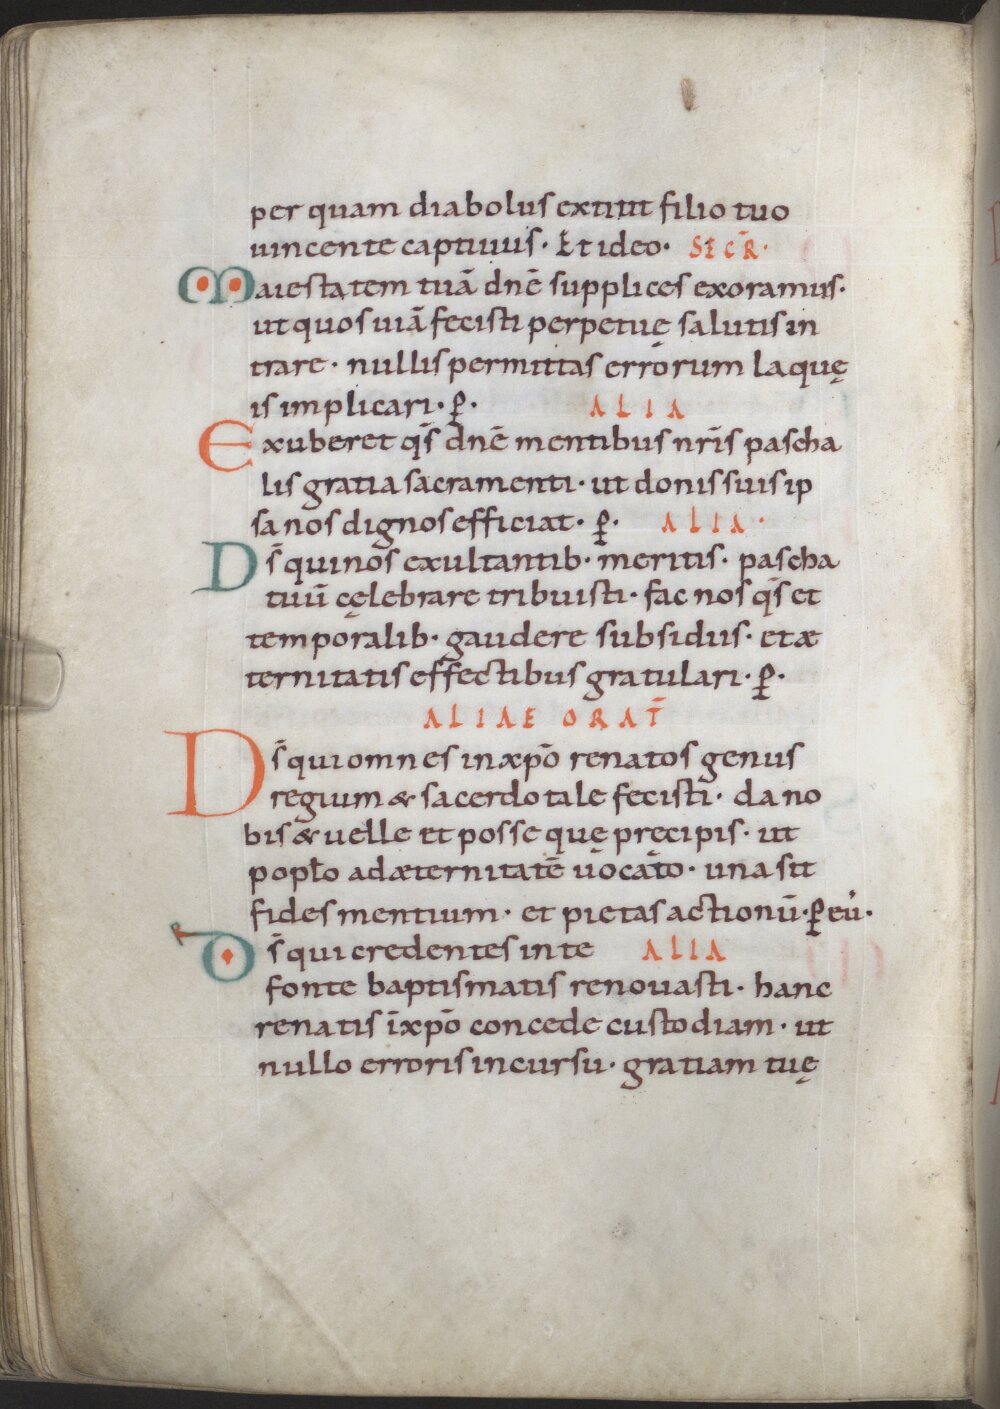 per quam diabolus extitit filio tuo
uincente captiuus · Et ideo · SECR̄ ·
Maiestatem tuā dn̄ē supplices exoramus ·
ut quos uiā fecisti perpetuę salutis in
trare · nullis permittas errorum laquę
is implicari · ꝑ · ALIA
Exuberet qs̄ dn̄ē mentibus nr̄is pascha
lis gratia sacramenti · ut donis suis ip
sa nos dignos efficiat · ꝑ · ALIA ·
Ds̄ qui nos exultantib · meritis · pascha
tuū cęlebrare tribuisti · fac nos qs̄ et
temporalib · gaudere subsidiis · et æ
ternitatis effectibus gratulari · ꝑ ·
ALIAE ORAT̄
Ds̄ qui omnes in xp̄o renatos genus
regium & sacerdotale fecisti · da no
bis & uelle et posse quę pręcipis · ut
popl̄o ad æternitatē uocato · una sit
fides mentium · et pietas actionū · ꝑ eū ·
Ds̄ qui credentes in te ALIA
fonte baptismatis renouasti · hanc
renatis īxp̄o concede custodiam · ut
nullo erroris incursu · gratiam tuę